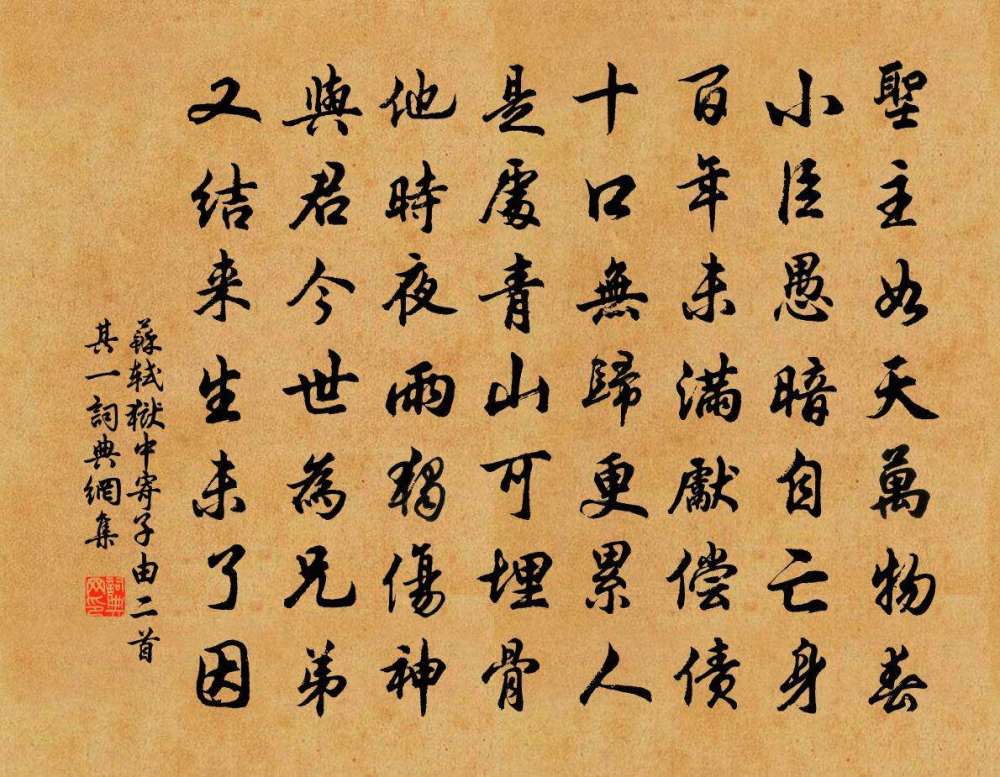 聖主如天萬物春
小臣愚暗自亡身
百年未滿獻偿债
十口無歸更累人
是處青山可埋骨
他時夜雨獨傷神
與君今世為兄弟
又结来生未了因
蘇軾獄中寄子由二首
其一詞典網集